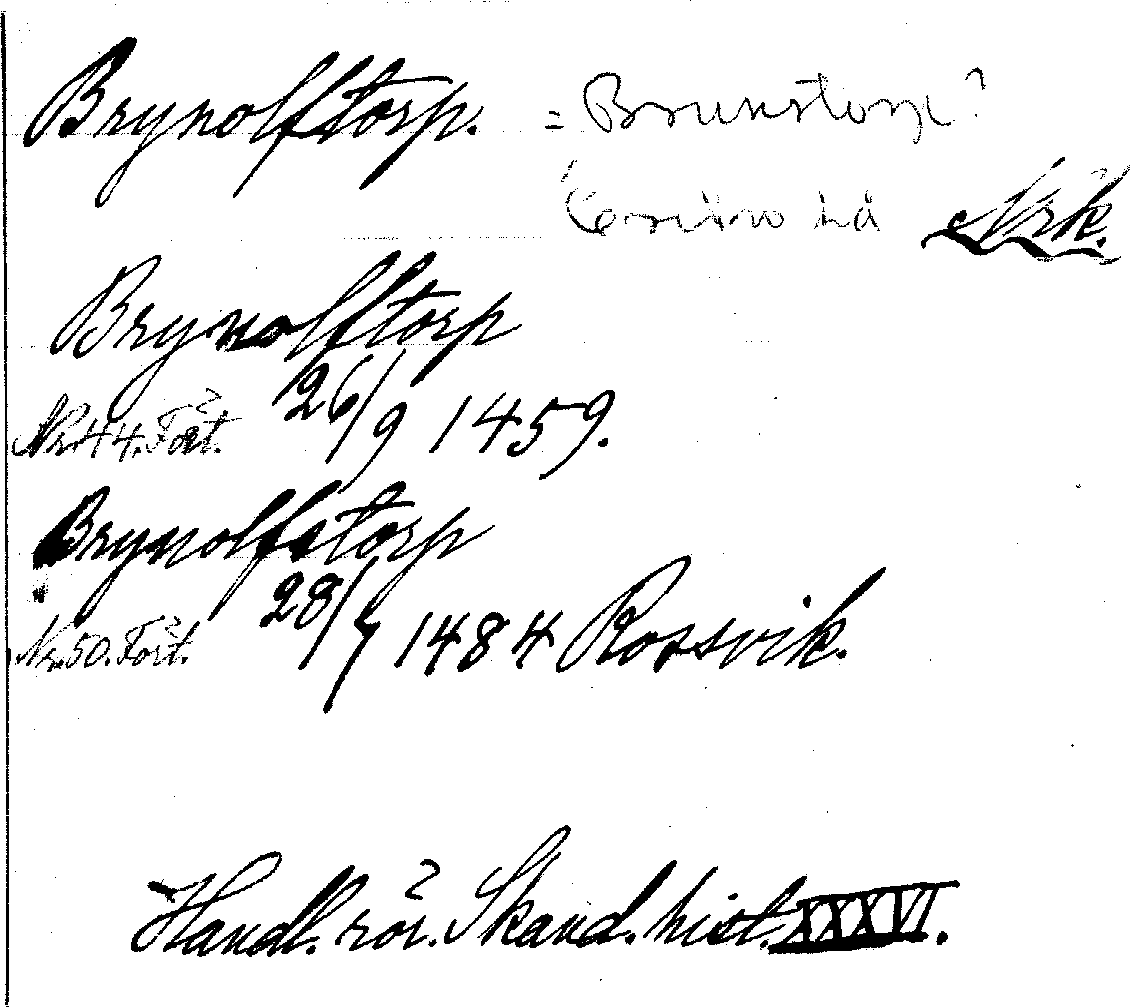 Brynolftorp. = Brunstorp?
Nrk.
Brynolftorp
Nr. 44. Fört. 26/9 1459.
Brynolfstorp
Nr. 50. Fört. 28/7 1484 Rossvik.
Handl. rör. Skand. hist. XXXVI.